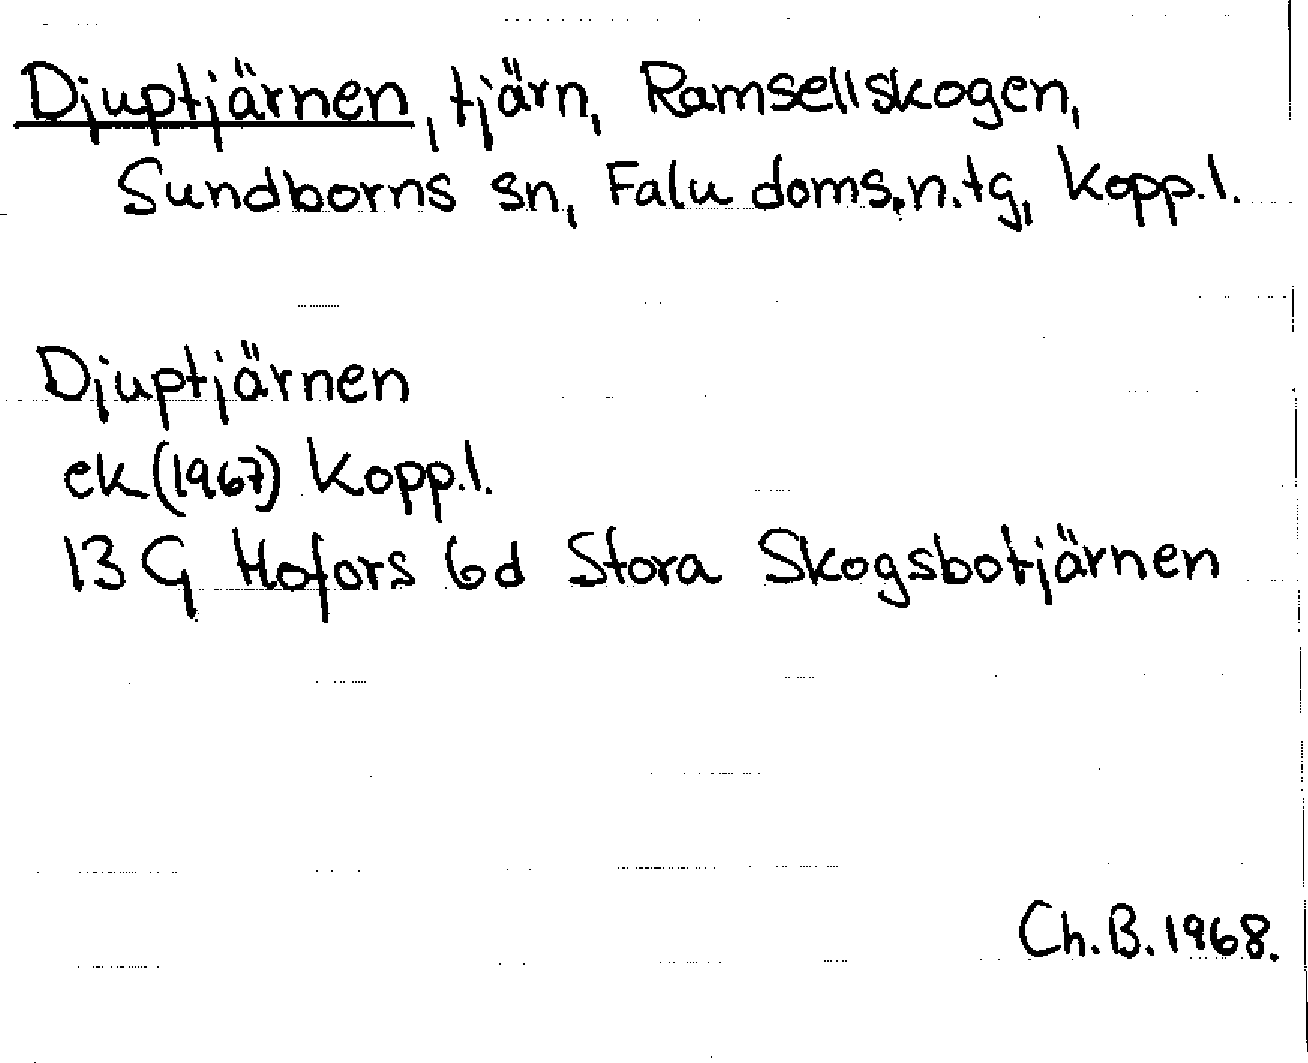 Djuptjärnen, tjärn, Ramsellskogen,
Sundborns sn, Falu doms.n.tg, Kopp.l.
Djuptjärnen
ek (1967) Kopp.l.
13 G Hofors 6d Stora Skogsbotjärnen
Ch.B. 1968.